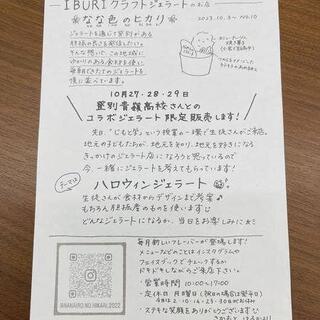 IBURIクラフトジェラートのお店
なな色のヒカリ
2023.10.3~ No.10
ジェラートを通じて登別がある
胆振の良さを発信したい。
そんな想いで、この地域に
ゆかりのある食材を使い
毎朝できたてのジェラートを
店に並べています。
10月27・28・29日
登別青嶺高校さんとの
コラボジェラート限定販売します!
先日、"じもと学"という授業の一環で生徒さんがご来店。
地元の子どもたちが、地元を知り、地元を好きになる
きっかけのジェラート店になろうと思っているので
今、一緒にジェラートを考えてもらっています!
テーマは
ハロウィンジェラート
生徒さんが食材からデザインまで考案♪
もちろん胆振産のものを使います
どんなジェラートになるか、当日をお楽しみに
NANAIRO.NO.HIKARI.2022
毎月新しいフレーバーが登場します!
メニューなどのことはインスタグラムや
フェイスブックでチェックするか
ドキドキしながらご来店下さい。
・営業時間 10:00~17:00
・定休日 月曜日(祝日の場合は翌平日)
ステキな笑顔をありがとうございます!